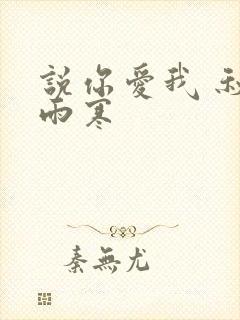 說你愛我
雨寒
秦無尤